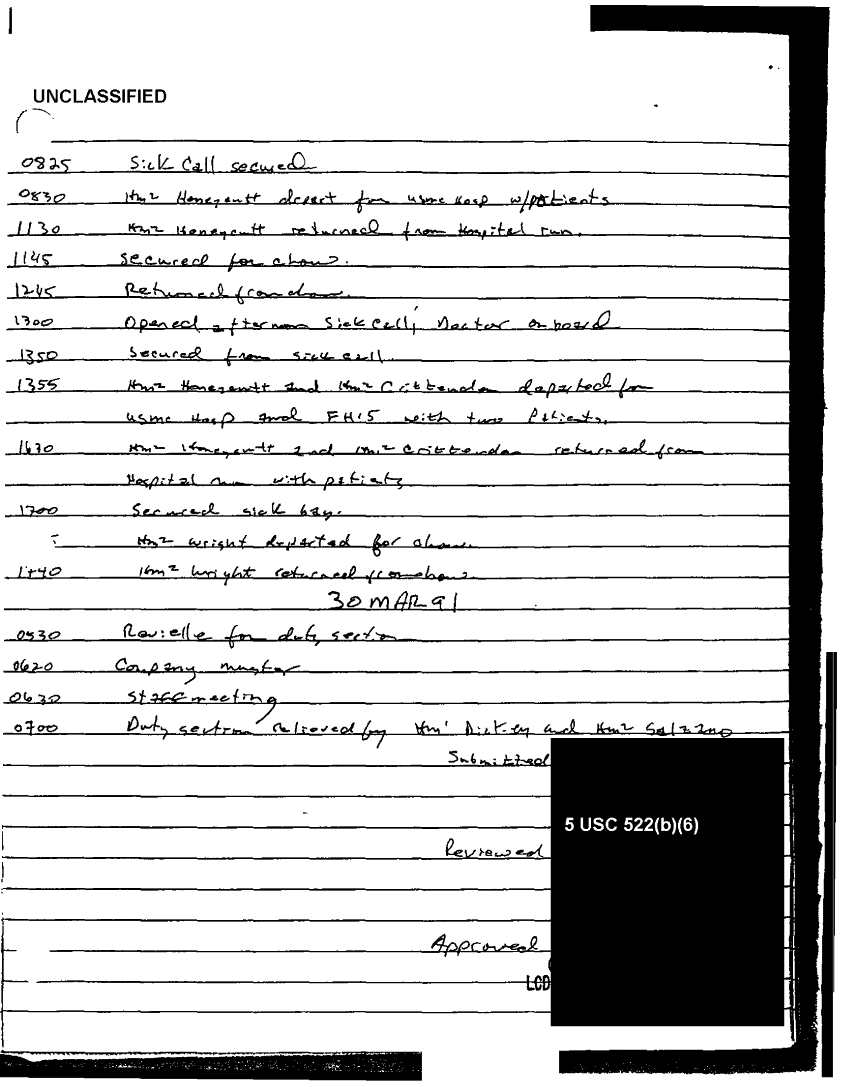 UNCLASSIFIED
0825 Sick Call secured
0830 Hm2 Honeycutt depart for usmc Hosp w/patients
1130 Hm2 Honeycutt returned from Hospital run.
1145 Secured for chow.
1245 Returned from chow.
1300 Opened afternoon Sick call, Doctor onboard
1350 Secured from sick call.
1355 Hm2 Honeycutt and Hm2 Crittendon departed for
usmc Hosp and FH15 with two Patients.
1630 Hm2 Honeycutt and Hm2 Crittendon returned from
Hospital run with patients
1700 Secured sick bay.
: Hm2 Wright departed for chow.
1740 Hm2 Wright returned from chow.
30 MAR 91
0530 Revielle for duty section
0620 Company muster
0630 Staff meeting
0700 Duty section relieved by Hm1 Dickey and Hm2
Submitted
5 USC 522(b)(6)
Reviewed
Approved
LCD